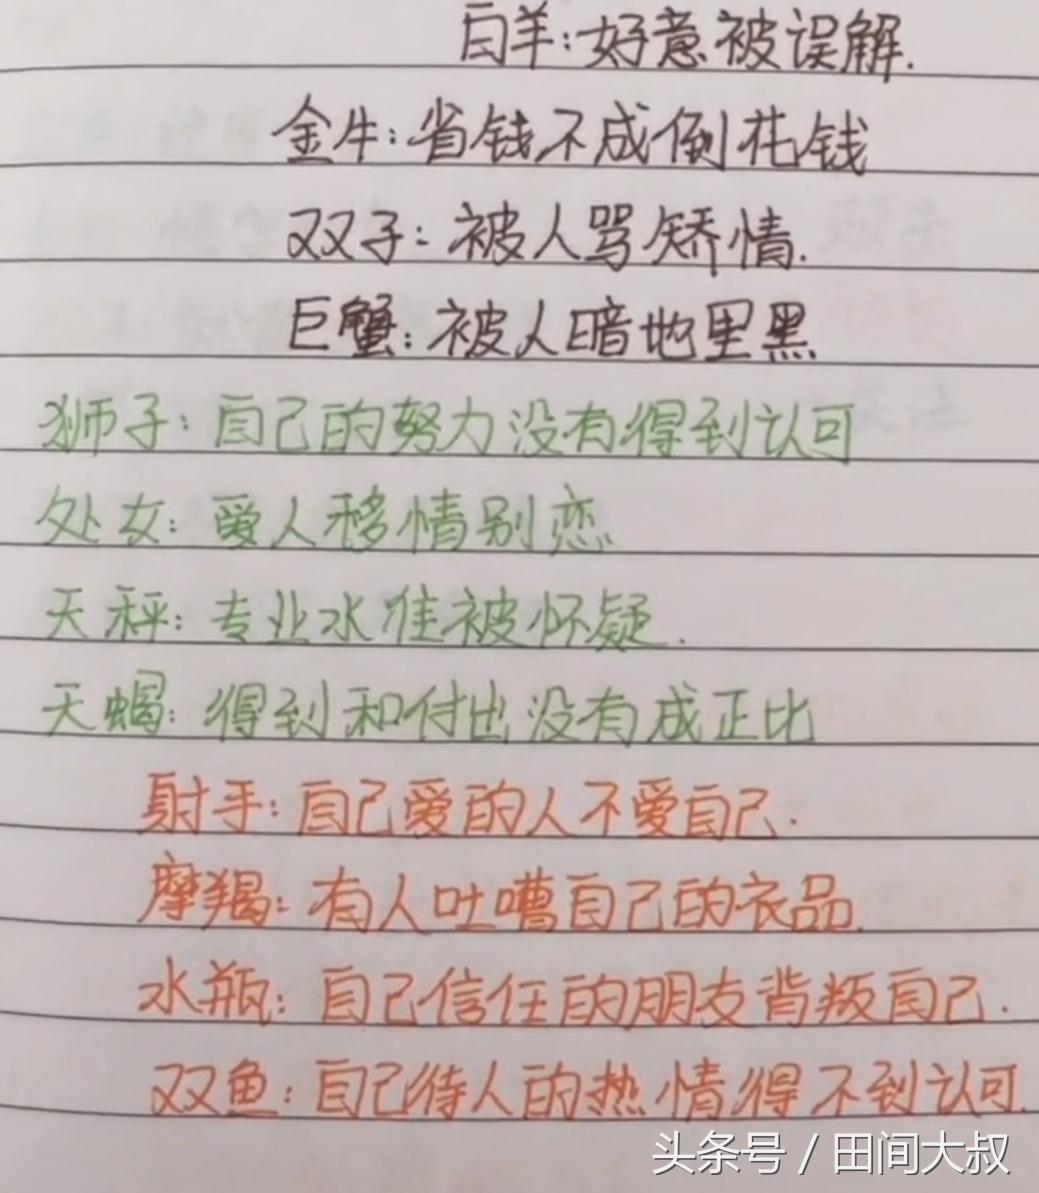 白羊:好意被误解.
金牛:省钱不成倒花钱
双子:被人骂矫情.
巨蟹:被人暗地里黑
狮子:自己的努力没有得到认可
处女:爱人移情别恋
天秤:专业水准被怀疑.
天蝎:得到和付出没有成正比
射手:自己爱的人不爱自己.
摩羯:有人吐嘈自己的衣品.
水瓶:自己信任的朋友背叛自己.
双鱼:自己待人的热情得不到认可.
头条号 / 田间大叔